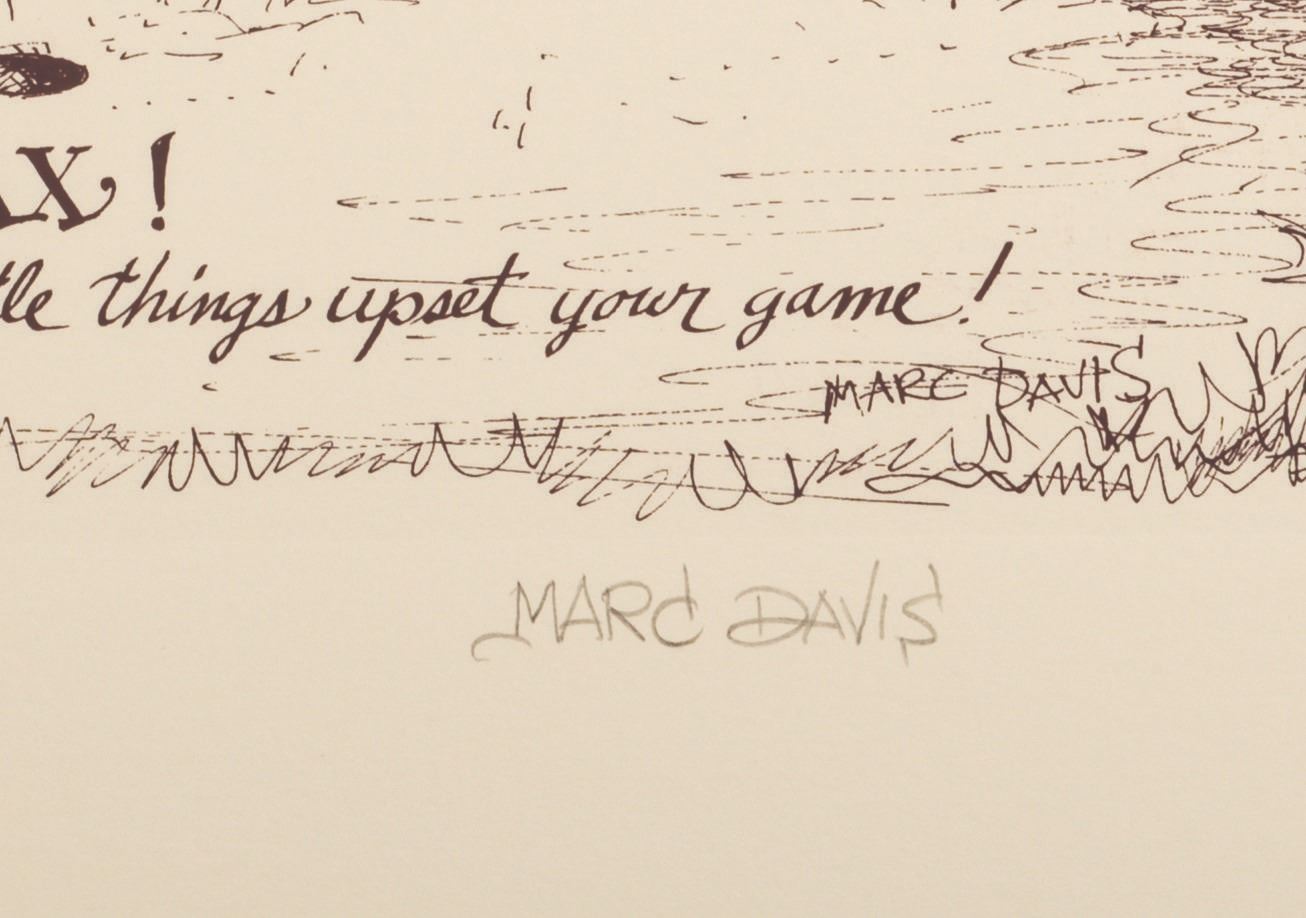 AX!
tle things upset your game!
MARC DAVIS
MARC DAVIS